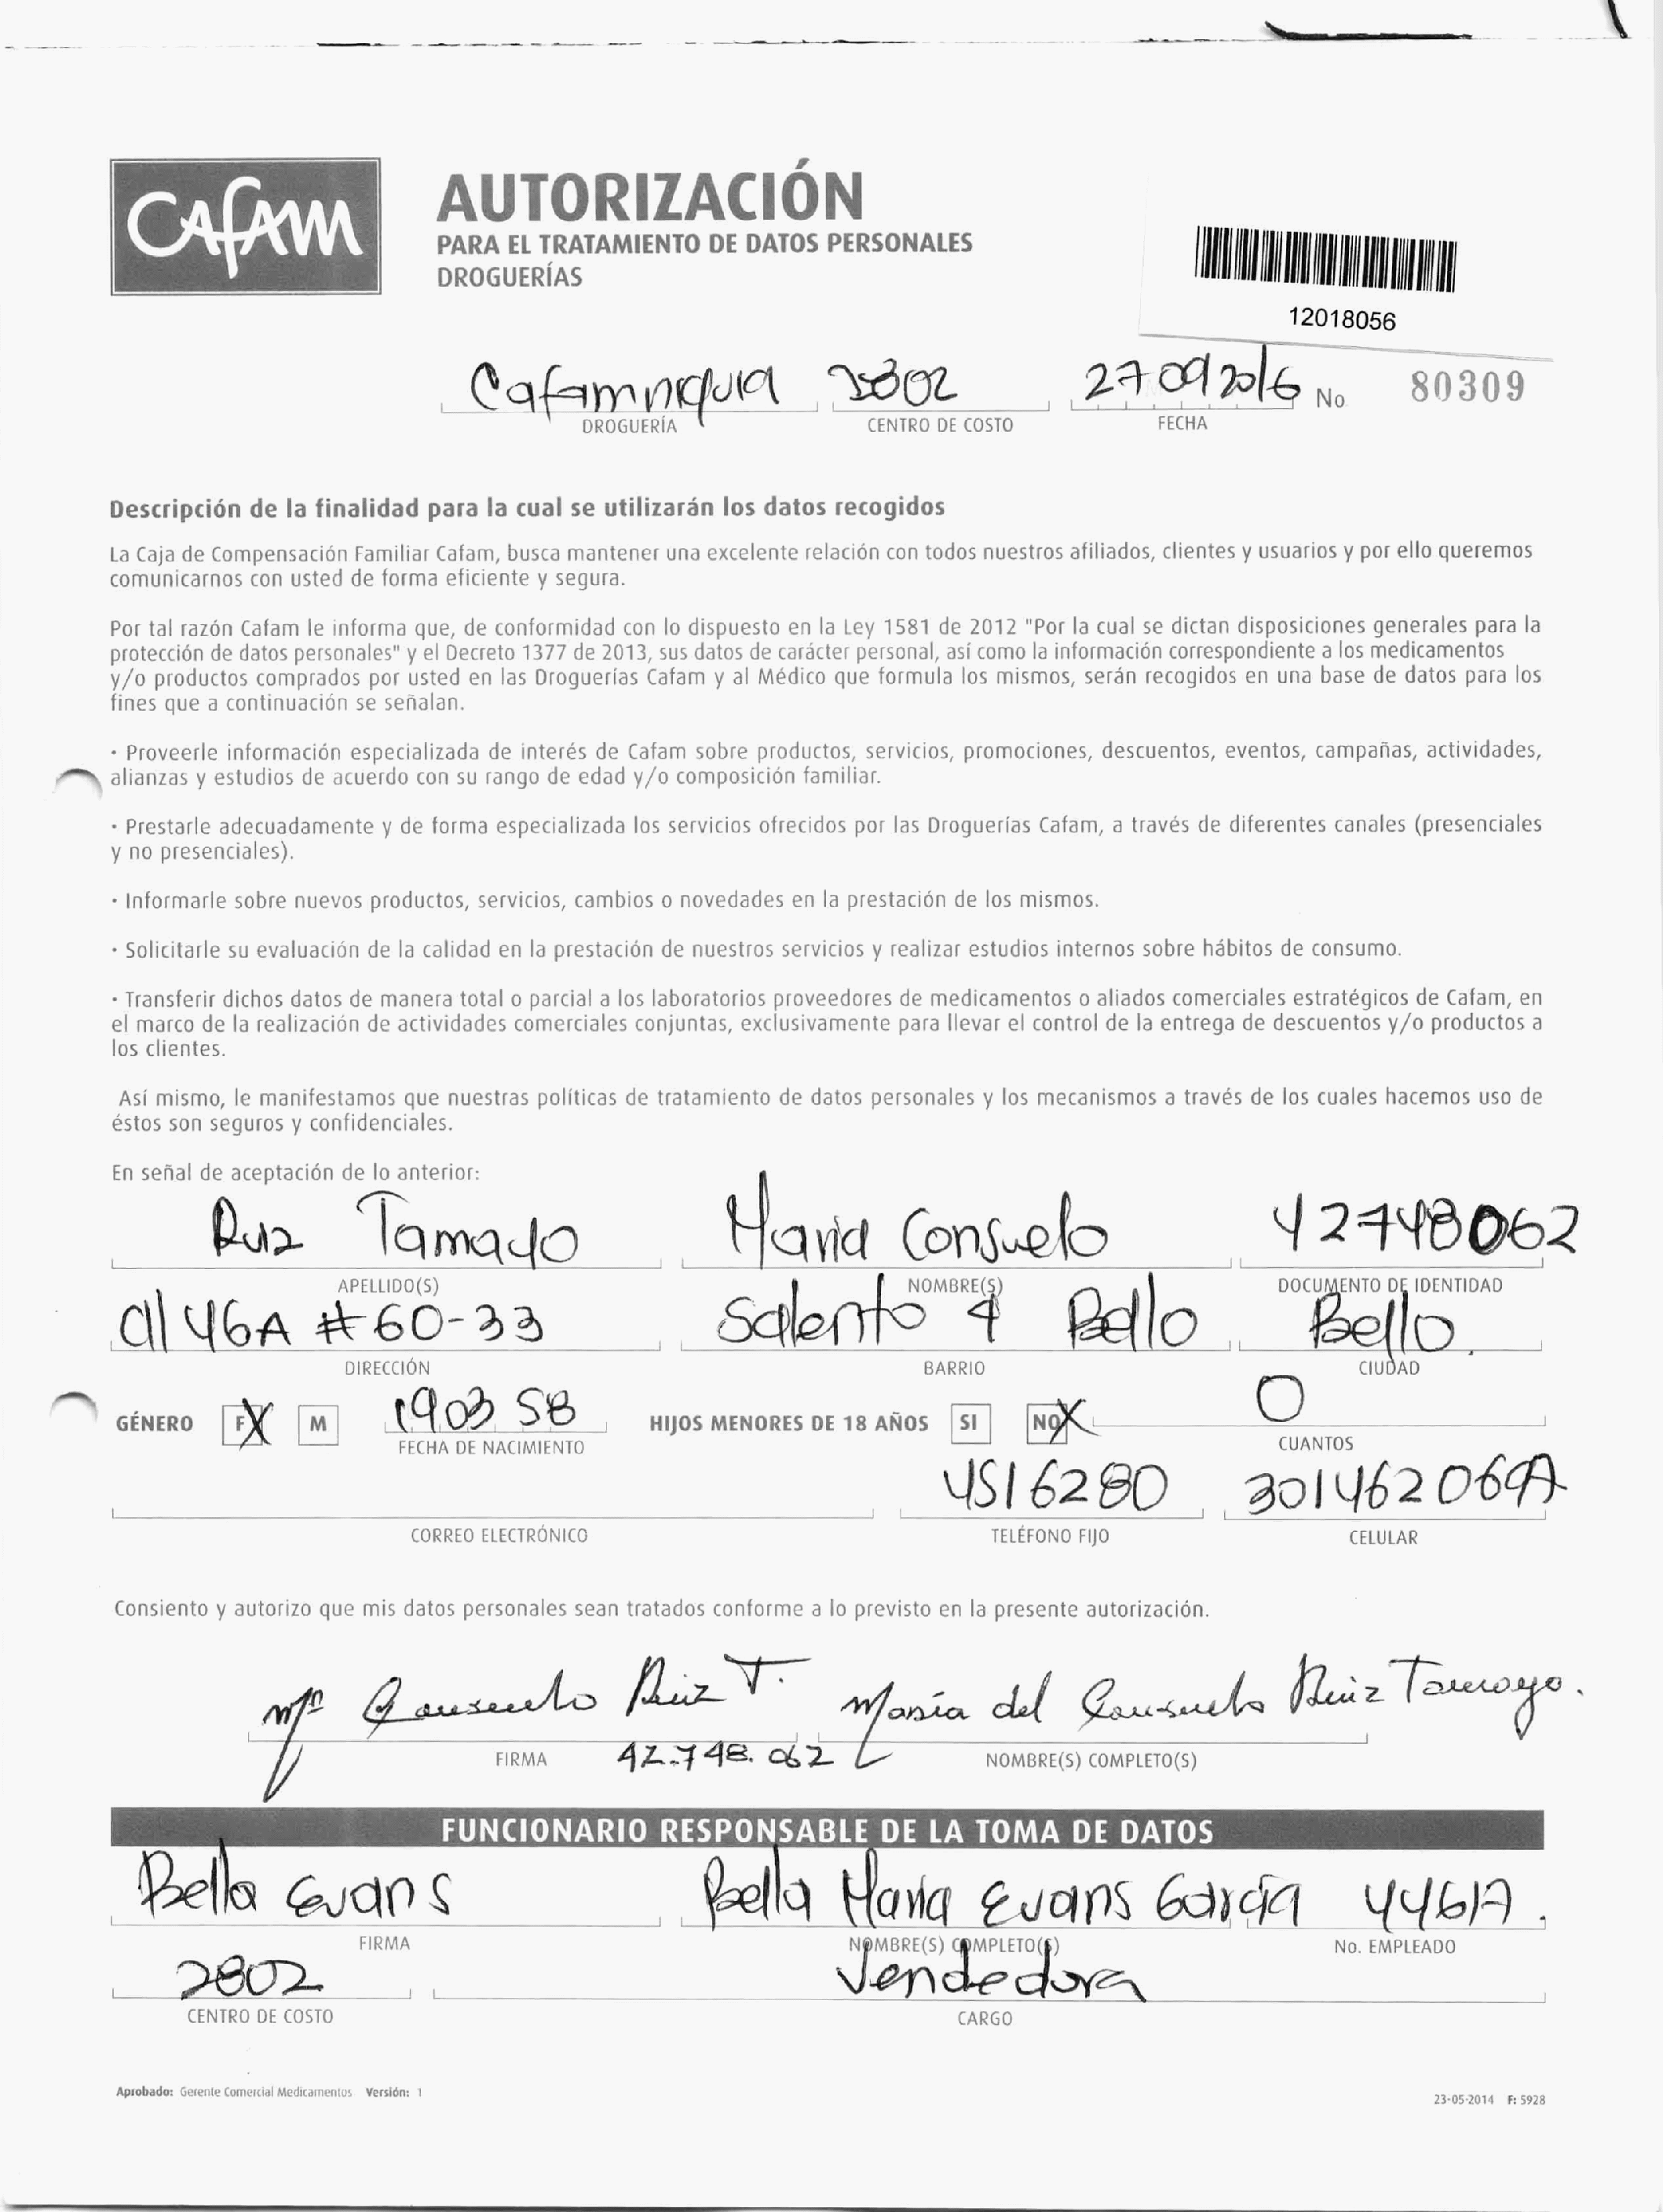 CAFAM
AUTORIZACIÓN
PARA EL TRATAMIENTO DE DATOS PERSONALES
DROGUERÍAS
12018056
2802 27 09 2016 No. 80309
DROGUERÍA CENTRO DE COSTO FECHA
Descripción de la finalidad para la cual se utilizarán los datos recogidos
La Caja de Compensación Familiar Cafam, busca mantener una excelente relación con todos nuestros afiliados, clientes y usuarios y por ello queremos
comunicarnos con usted de forma eficiente y segura.
Por tal razón Cafam le informa que, de conformidad con lo dispuesto en la Ley 1581 de 2012 "Por la cual se dictan disposiciones generales para la
protección de datos personales" y el Decreto 1377 de 2013, sus datos de carácter personal, así como la información correspondiente a los medicamentos
y/o productos comprados por usted en las Droguerías Cafam y al Médico que formula los mismos, serán recogidos en una base de datos para los
fines que a continuación se señalan.
· Proveerle información especializada de interés de Cafam sobre productos, servicios, promociones, descuentos, eventos, campañas, actividades,
alianzas y estudios de acuerdo con su rango de edad y/o composición familiar.
· Prestarle adecuadamente y de forma especializada los servicios ofrecidos por las Droguerías Cafam, a través de diferentes canales (presenciales
y no presenciales).
· Informarle sobre nuevos productos, servicios, cambios o novedades en la prestación de los mismos.
· Solicitarle su evaluación de la calidad en la prestación de nuestros servicios y realizar estudios internos sobre hábitos de consumo.
· Transferir dichos datos de manera total o parcial a los laboratorios proveedores de medicamentos o aliados comerciales estratégicos de Cafam, en
el marco de la realización de actividades comerciales conjuntas, exclusivamente para llevar el control de la entrega de descuentos y/o productos a
los clientes.
Así mismo, le manifestamos que nuestras políticas de tratamiento de datos personales y los mecanismos a través de los cuales hacemos uso de
éstos son seguros y confidenciales.
En señal de aceptación de lo anterior:
Ruiz Tamayo Maria Consuelo 42748062
APELLIDO(S) NOMBRE(S) DOCUMENTO DE IDENTIDAD
Cll 46A # 60-33 Salento 4 Bello Bello.
DIRECCIÓN BARRIO CIUDAD
GÉNERO F X M 1903 58 HIJOS MENORES DE 18 AÑOS SI NO X 0
FECHA DE NACIMIENTO CUANTOS
4516280
CORREO ELECTRÓNICO TELÉFONO FIJO CELULAR
Consiento y autorizo que mis datos personales sean tratados conforme a lo previsto en la presente autorización.
Mª Consuelo Ruiz T. María del Consuelo Ruiz Tamayo.
FIRMA 42.748.062 NOMBRE(S) COMPLETO(S)
FUNCIONARIO RESPONSABLE DE LA TOMA DE DATOS
Bella Evans Bella Maria Evans Garcia
FIRMA NOMBRE(S) COMPLETO(S) No. EMPLEADO
2802 Vendedora
CENTRO DE COSTO CARGO
Aprobado: Gerente Comercial Medicamentos Versión: 1
23-05-2014 F: 5928